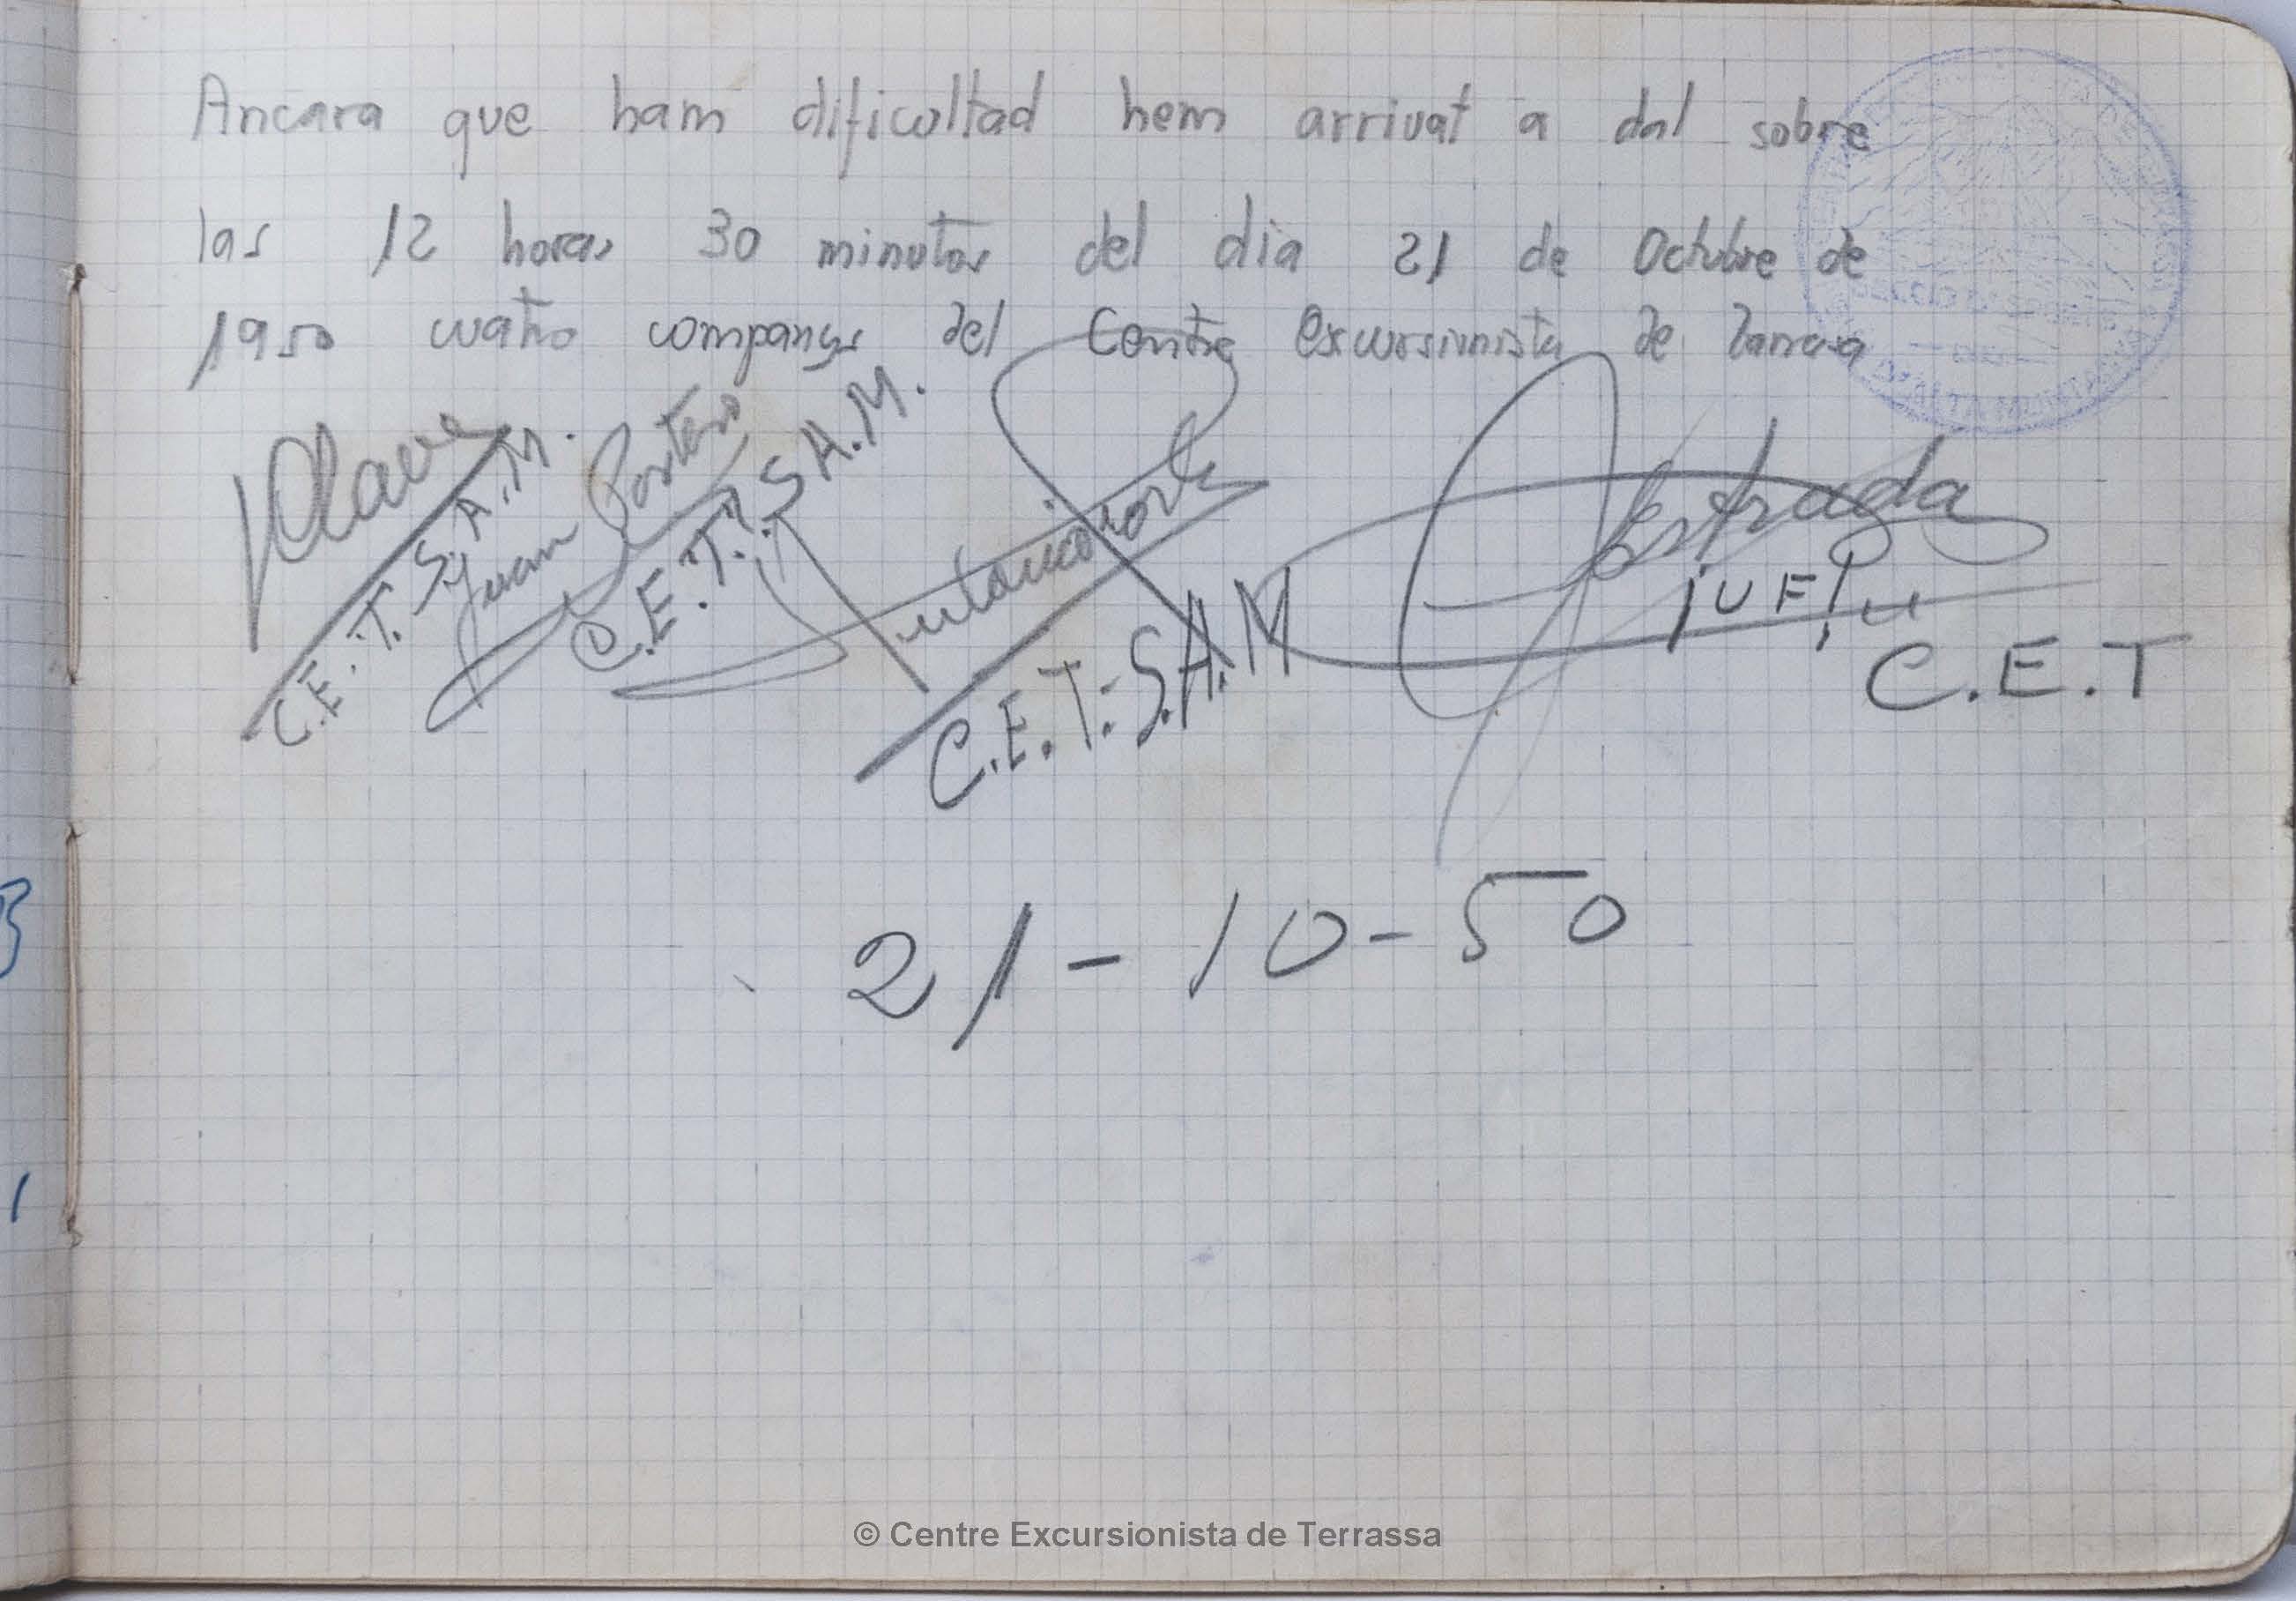 Ancara que ham dificultad hem arrivat a dal sobre
las 12 horas 30 minutos del dia 21 de Octubre de
1950 cuatro companys del Centre Excursionista de Tarrasa
C.E.T. S.A.M.
Juan Portero
C.E.T. S.A.M.
C.E.T.-S.A.M
Estrada
¡UF!
C.E.T
21-10-50
© Centre Excursionista de Terrassa